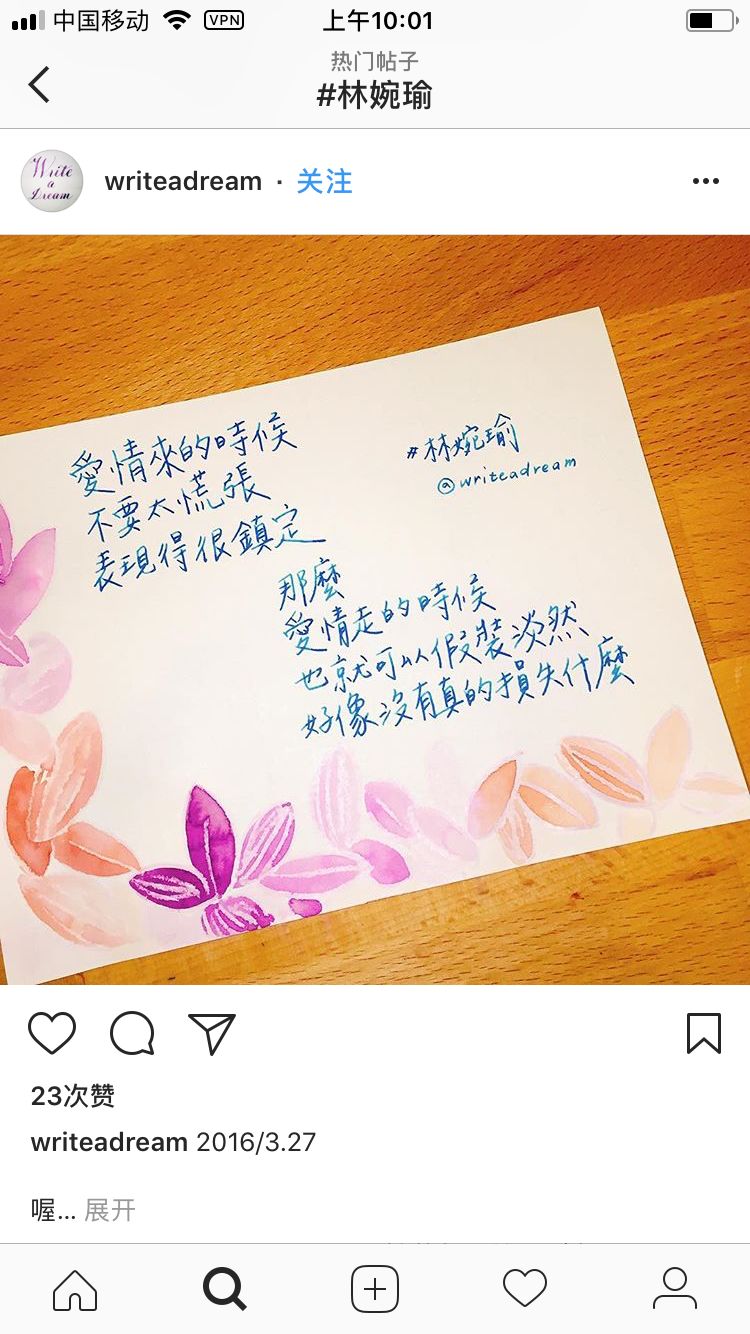 中国移动 VPN 上午10:01
热门帖子
#林婉瑜
Write
a
Dream
writeadream · 关注
愛情來的時候
不要太慌張
表現得很鎮定
#林婉瑜
@writeadream
那麼
愛情走的時候
也就可以假裝淡然
好像沒有真的損失什麼
23次赞
writeadream 2016/3.27
喔... 展开